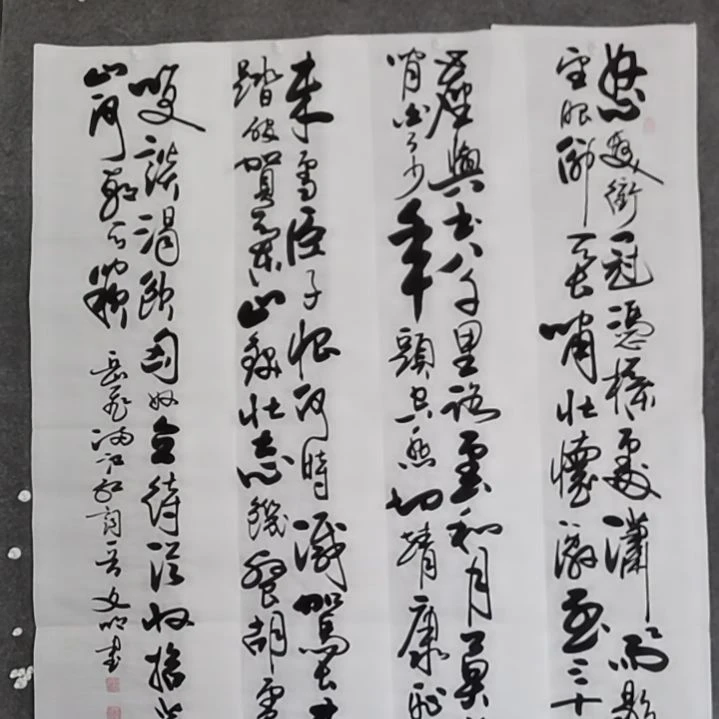 怒髮衝冠憑欄處瀟雨歇
望眼仰天長嘯壯懷激烈三十
塵與土八千里路雲和月莫
白了少年頭空悲切靖康恥
來雪臣子恨何時滅駕長車
踏破賀蘭山缺壯志飢餐胡虜
笑談渴飲匈奴血待從收拾舊
山河朝天闕 岳飛滿江紅詞 書